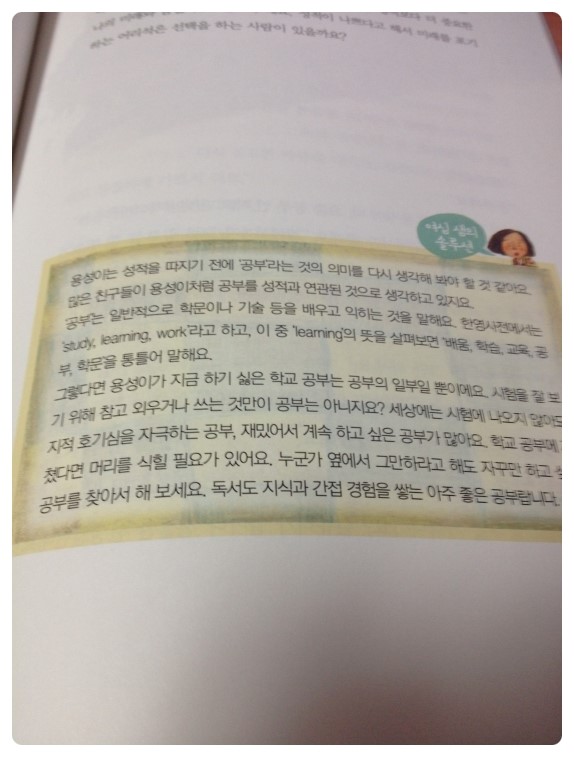 나의 미래와
나쁘다고 해서 미래를 포기
하는 어리석은 선택을 하는 사람이 있을까요?
여심 샘의
솔루션
용성이는 성적을 따지기 전에 '공부'라는 것의 의미를 다시 생각해 봐야 할 것 같아요.
많은 친구들이 용성이처럼 공부를 성적과 연관된 것으로 생각하고 있지요.
'공부'는 일반적으로 학문이나 기술 등을 배우고 익히는 것을 말해요. 한영사전에서는
'study, learning, work'라고 하고, 이 중 'learning'의 뜻을 살펴보면 '배움, 학습, 교육, 공
부, 학문'을 통틀어 말해요.
그렇다면 용성이가 지금 하기 싫은 학교 공부는 공부의 일부일 뿐이에요. 시험을 잘 보
기 위해 참고 외우거나 쓰는 것만이 공부는 아니지요? 세상에는 시험에 나오지 않아도
지적 호기심을 자극하는 공부, 재밌어서 계속 하고 싶은 공부가 많아요. 학교 공부에
쳤다면 머리를 식힐 필요가 있어요. 누군가 옆에서 그만하라고 해도 자꾸만 하고
공부를 찾아서 해 보세요. 독서도 지식과 간접 경험을 쌓는 아주 좋은 공부랍니다.